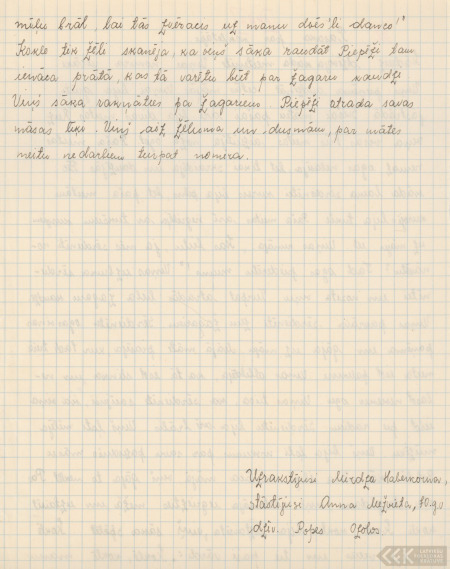 mīļu brāl, lai tās zvēraces uz manu dvēs'li danco!"
Kokle tik žēli skanēja, ka viņš sāka raudāt Piepēži tam
ienāca prātā, kas tā varētu būt par žagaru kaudzi
Viņš sāka rakņāties pa žagariem. Piepēži atrada savas
māsas līķi. Viņš aiz žēluma un dusmām, par mātes
neitu nedarbiem turpat nomira.
Uzrakstījusi Mirdza Haberkorna,
stāstījusi Anna Mežviete, 70.g.v
dzīv. Popes Ozolos.
LATVIEŠU
FOLKLORAS
KRĀTUVE